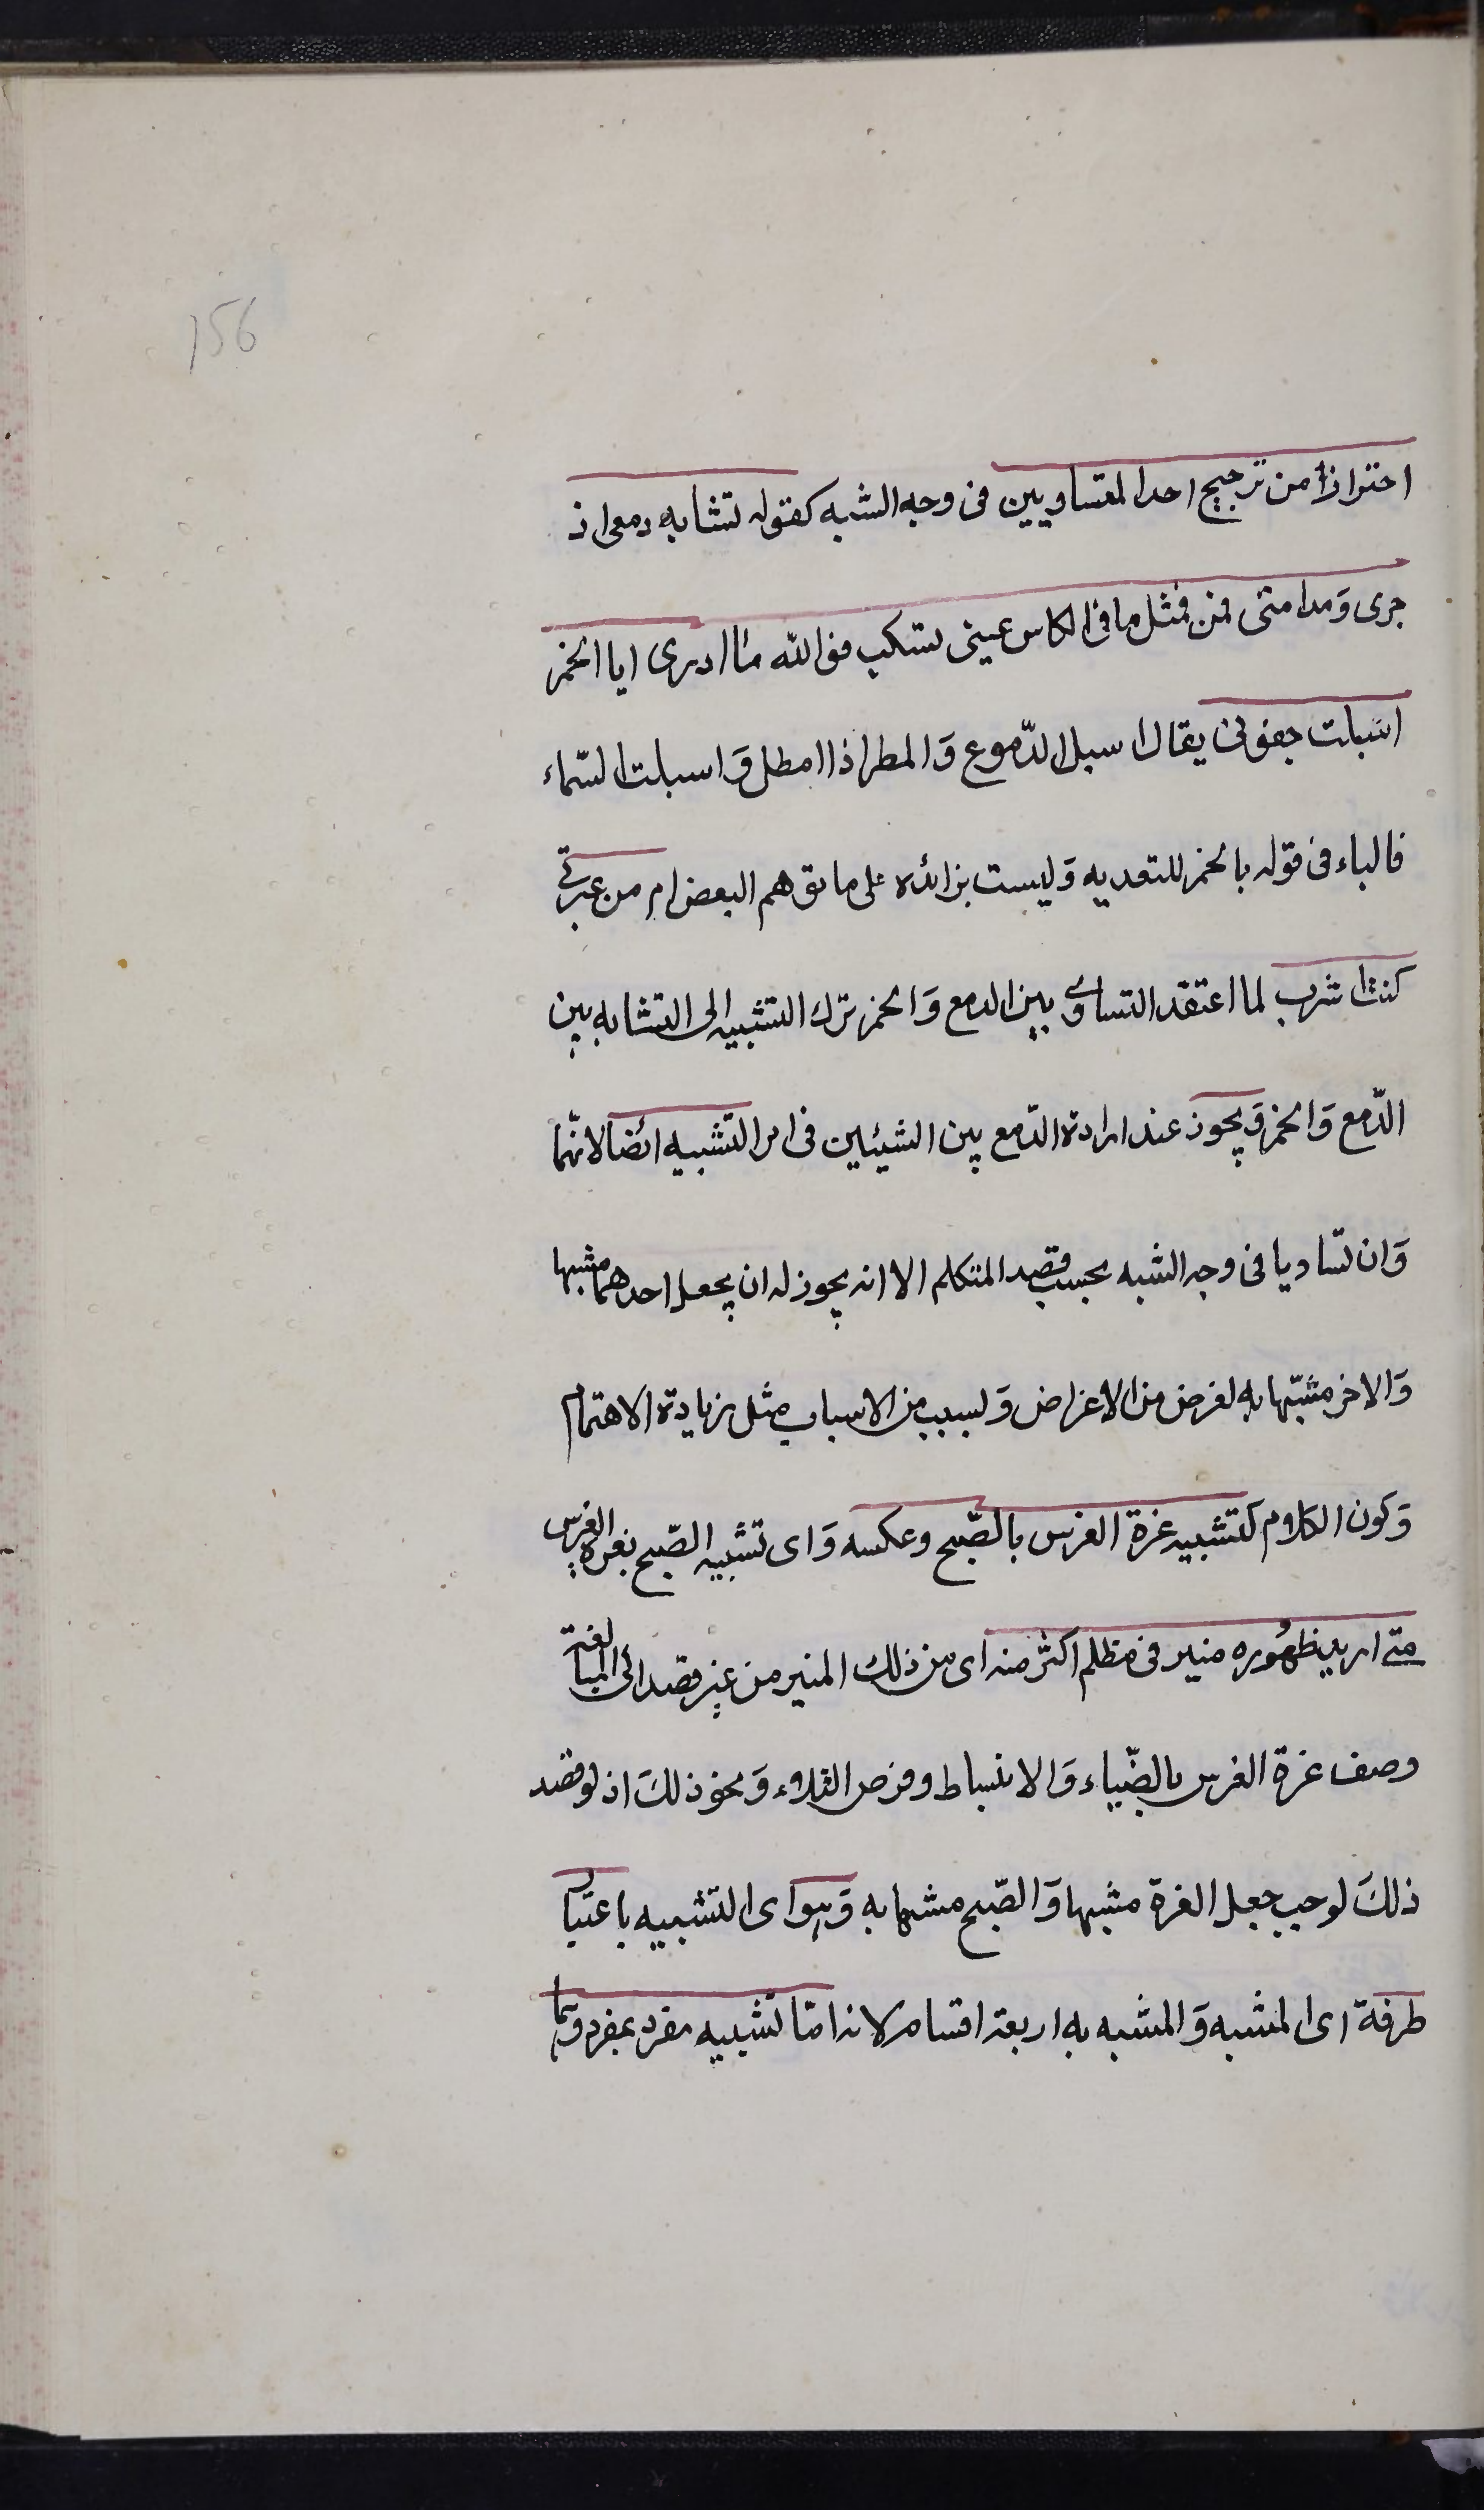 156
احترازا من ترجيح احد المتساويين فى وجه الشبه كقوله تشابه دمعى اذ
جرى وَمدامتى فمن فمثل ما فى الكاس عينى تسكب فوالله ما ادرى ايا الخمر
اسبلت جفونى يقال اسبل الدّموع وَالمطر اذا امطل وَاسبلت السّماء
فالباء فى قوله بالخمر للتعديه وَليست بزائده على ما توهم البعض ام من عبرتے
كنت اشرب لما اعتقد التساوى بين الدمع وَالخمر ترك التشبيه الى التشابه بين
الدّمع وَالخمر وَيجوز عند ارادة الدّمع بين الشيئين فى امر التشبيه ائضا لانّهما
وَان تساويا فى وجه الشبه بحسب قصد المتكلم الا انه يجوز له ان يجعل احدهما مشبها
وَالاخر مشبّها به لغرض من الاغراض وَلسبب من الاسباب مثل زيادة الاهتمام
وَكون الكلام كتشبيه غرة الفرس بالصّبح وعكسه وَاى تشبيه الصّبح بغرة الفرس
متے اريد ظهُوره منير فى مظلم اكثر منه اى من ذلك المنير من غير قصد الى المبالغة
وصف غرة الفرس بالضّياء وَالانبساط وفرص التلاوء وَنحو ذلكَ اذ لو قصد
ذلكَ لوجب جعل الغرة مشبها وَالصّبح مشبها به وَهو اى التشبيه باعتبا
طرفة اى المشبه وَالمشبه به اربعة اقسام لانه امّا تشبيه مفرد بمفرد وَهما